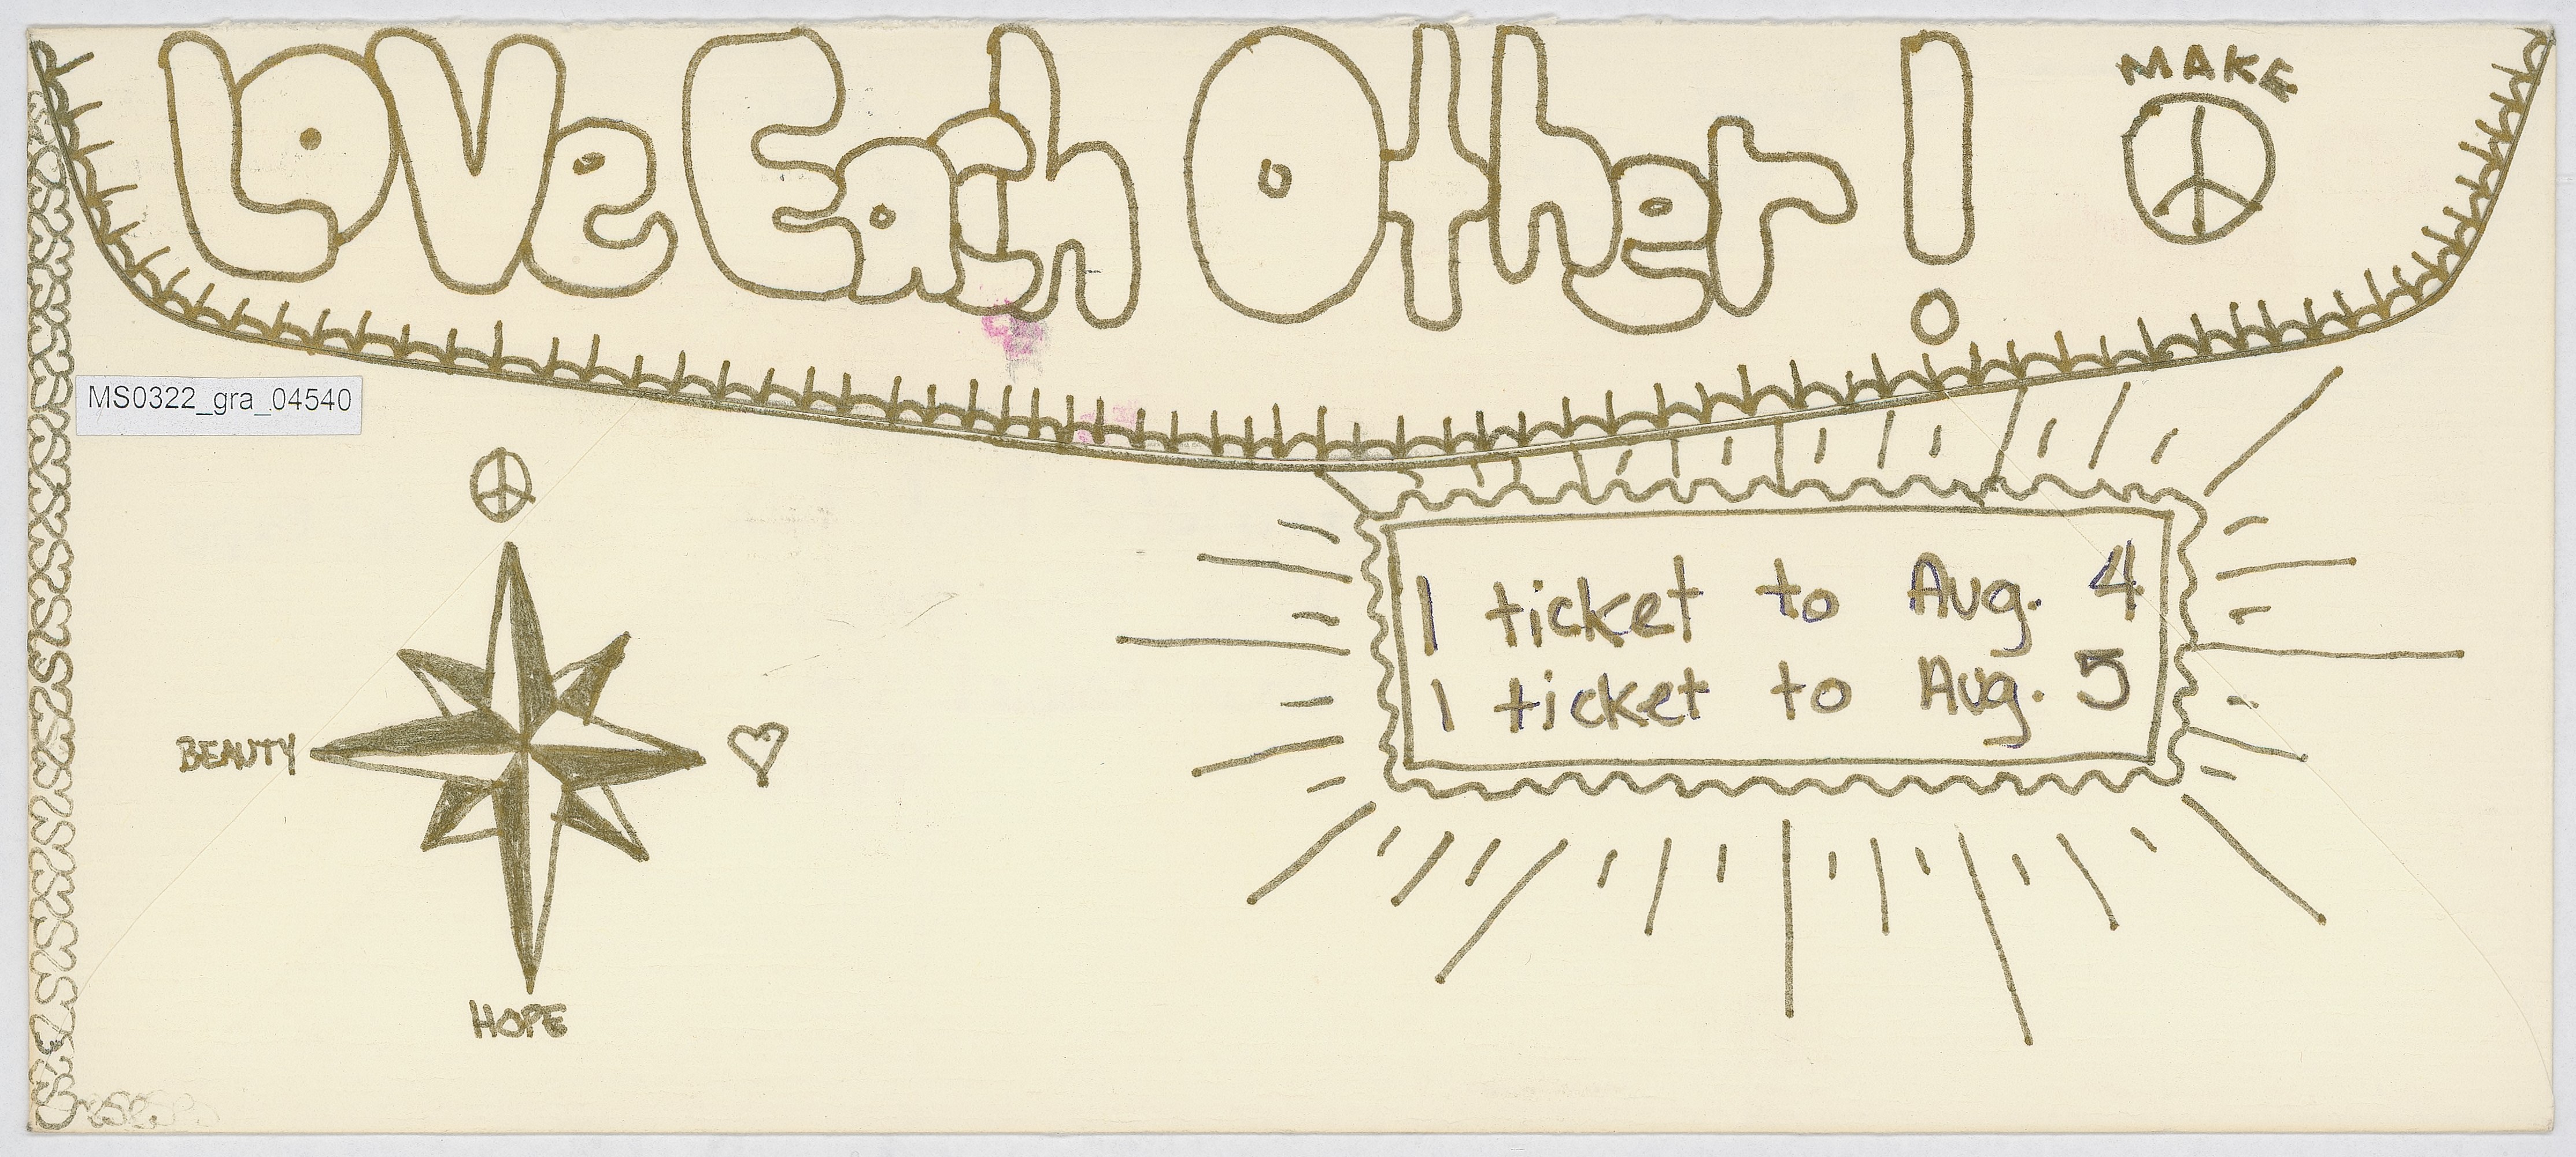 Love Each Other!
MAKE
MS0322_gra_04540
1 ticket to Aug. 4
1 ticket to Aug. 5
BEAUTY
HOPE